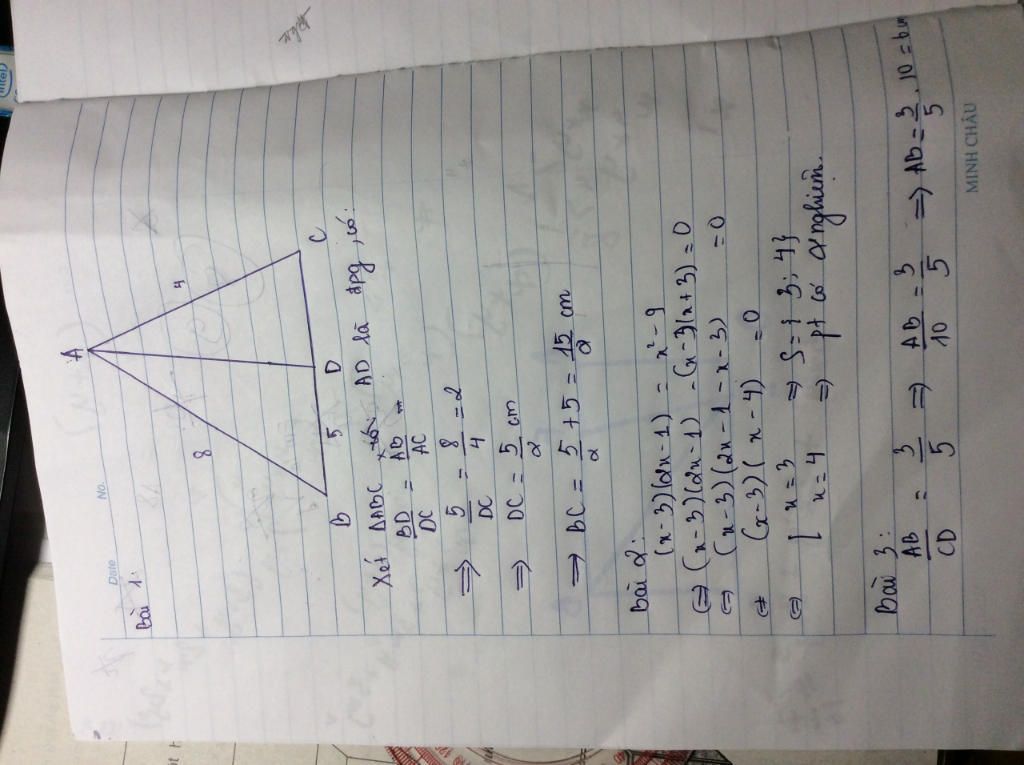 Date No.
Bài 1:
A
8 4
B 5 D C
Xét ΔABC AD là đpg, có:
BD/DC = AB/AC
⇒ 5/DC = 8/4 = 2
⇒ DC = 5/2 cm
⇒ BC = 5/2 + 5 = 15/2 cm
Bài 2:
(x-3)(2x-1) = x² - 9
⇔ (x-3)(2x-1) - (x-3)(x+3) = 0
⇔ (x-3)(2x-1-x-3) = 0
⇔ (x-3)(x-4) = 0
⇔ [ x=3 ⇒ S={3; 4}
x=4 ⇒ pt có 2 nghiệm.
Bài 3:
AB/CD = 3/5 ⇒ AB/10 = 3/5 ⇒ AB = 3/5 . 10 = 6 cm
MINH CHÂU
intel